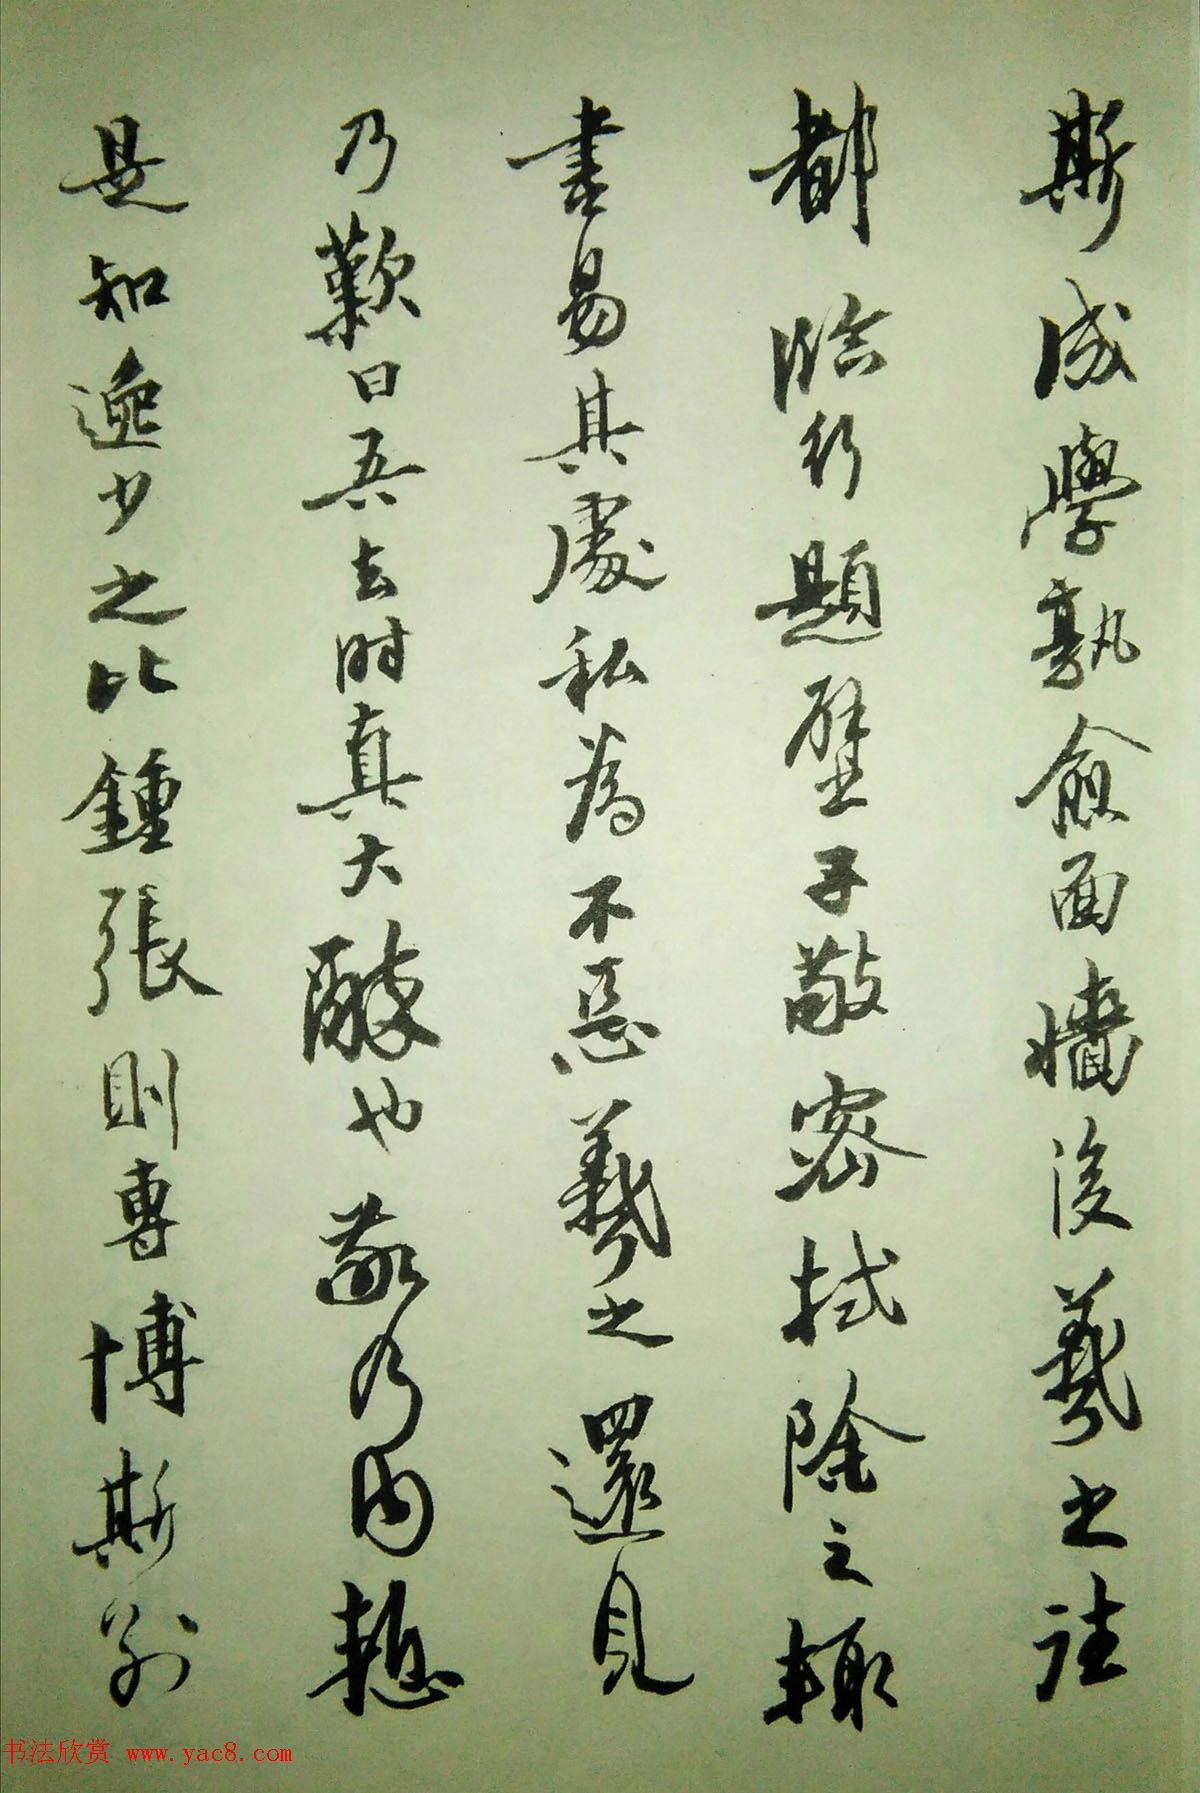 斯成學孰愈面墻後羲之往
都臨行題壁子敬密拭除之輙
書易其處私為不惡羲之還見
乃歎曰吾去時真大醉也敬乃內慙
是知逸少之比鍾張則專博斯別
书法欣赏 www.yac8.com